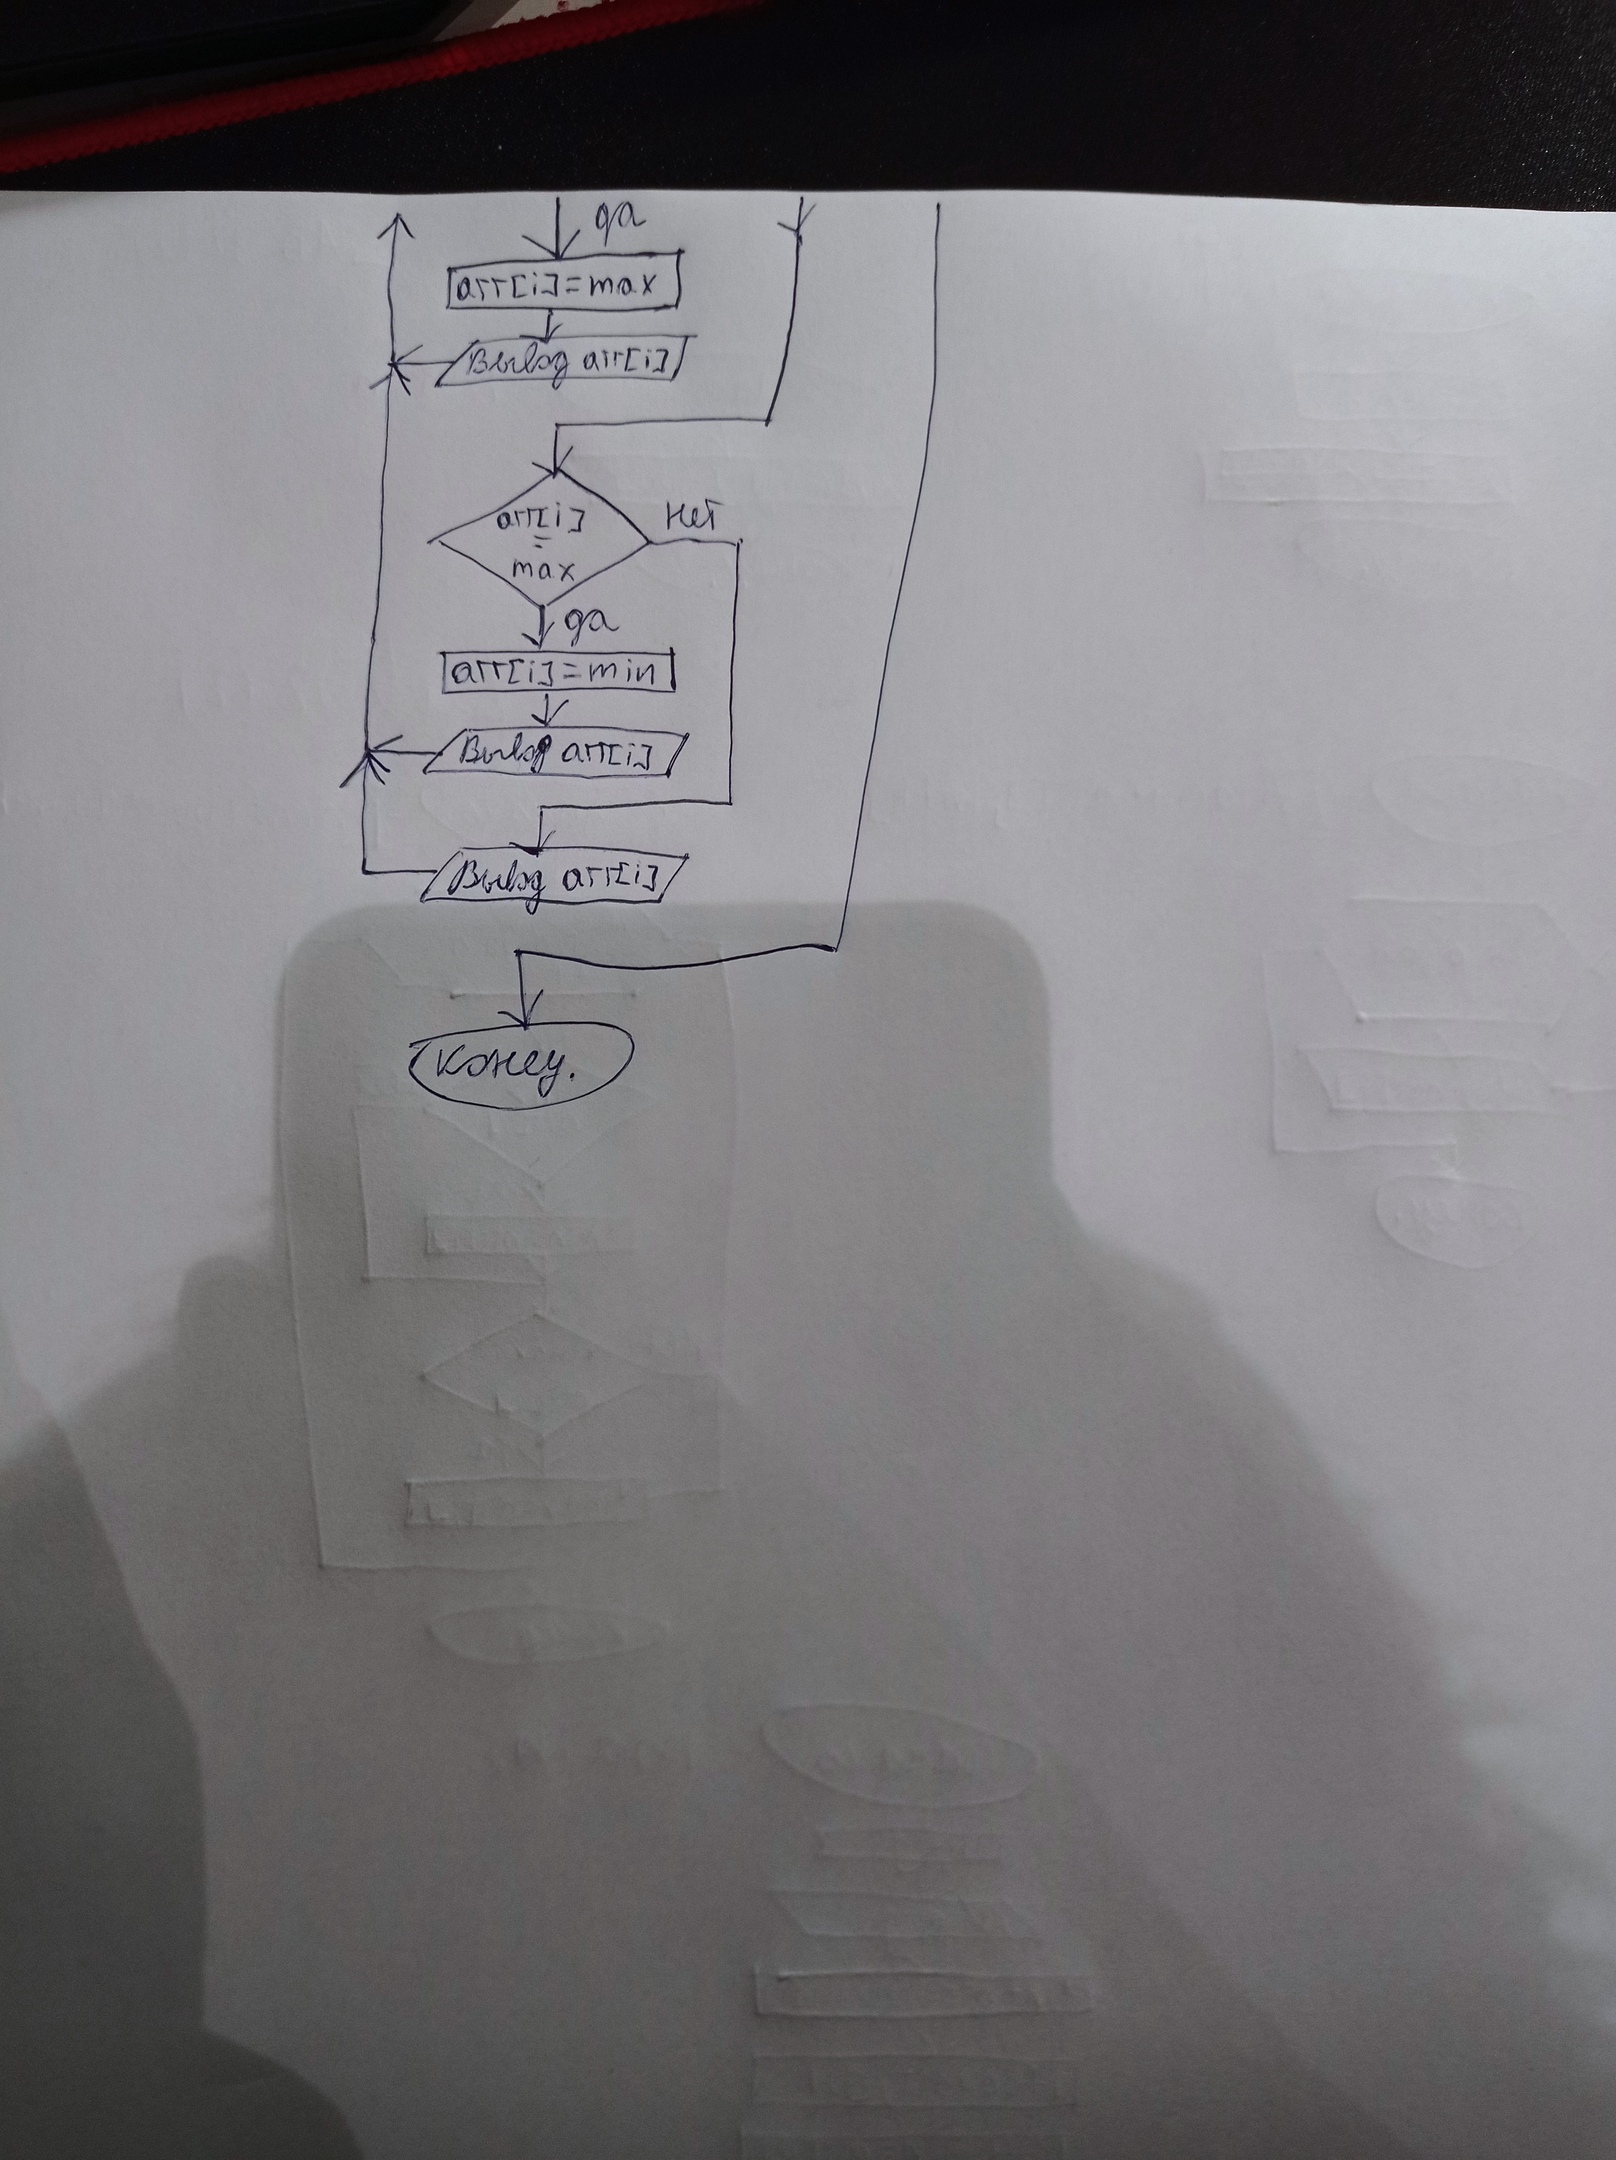 да
arr[i]=max
Вывод arr[i]
arr[i]
=
max
нет
да
arr[i]=min
Вывод arr[i]
Вывод arr[i]
конец.